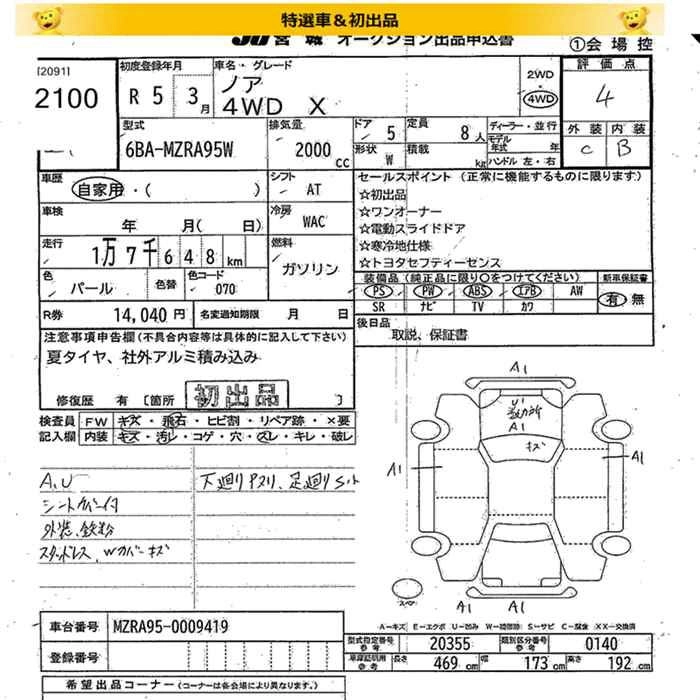 特選車&初出品
JU宮城 オークション出品申込書
①会場控
[2091]
2100
初度登録年月
R 5 3月
車名・グレード
ノア
4WD X
2WD
4WD
評価点
4
外装 内装
C B
型式
6BA-MZRA95W
排気量
2000 cc
ドア 5
形状 W
定員 8人
積載 kg
ディーラー・並行
モデル年式 年
ハンドル 左・右
車歴
自家用・( )
シフト AT
車検
年 月( 日)
冷房 WAC
走行
1万7千648km
燃料
ガソリン
色
パール
色替
色コード
070
R券 14,040円
名変通知期限 月 日
セールスポイント (正常に機能するものに限ります)
☆初出品
☆ワンオーナー
☆電動スライドドア
☆寒冷地仕様
☆トヨタセフティーセンス
装備品(純正品に限り○をつけてください)
新車保証書
PS PW ABS エアB AW
SR ナビ TV カワ
有 無
後日品
取説、保証書
注意事項申告欄(不具合内容等は具体的に記入して下さい)
夏タイヤ、社外アルミ積み込み
修復歴 有 [箇所 ]
初出品
検査員記入欄
FW キズ・飛石・ヒビ割・リペア跡・×要
内装 キズ・汚レ・コゲ・穴・スレ・キレ・破レ
A,U
シートカバー付
外装、鉄粉
スタッドレス、Wカバーキズ
下廻りPスリ、足廻りSル
A1
U1
数カ所
A1
キズ
A1
A1
A1
A1
スペア
A-キズ E-エクボ U-凹み W-補修跡 S-サビ C-腐食 XX-交換済
車台番号 MZRA95-0009419
登録番号
型式指定番号 参考 20355
類別区分番号 参考 0140
車庫証明用 参考 長さ 469 cm 幅 173 cm 高さ 192 cm
希望出品コーナー(コーナーは各会場により異なります。)